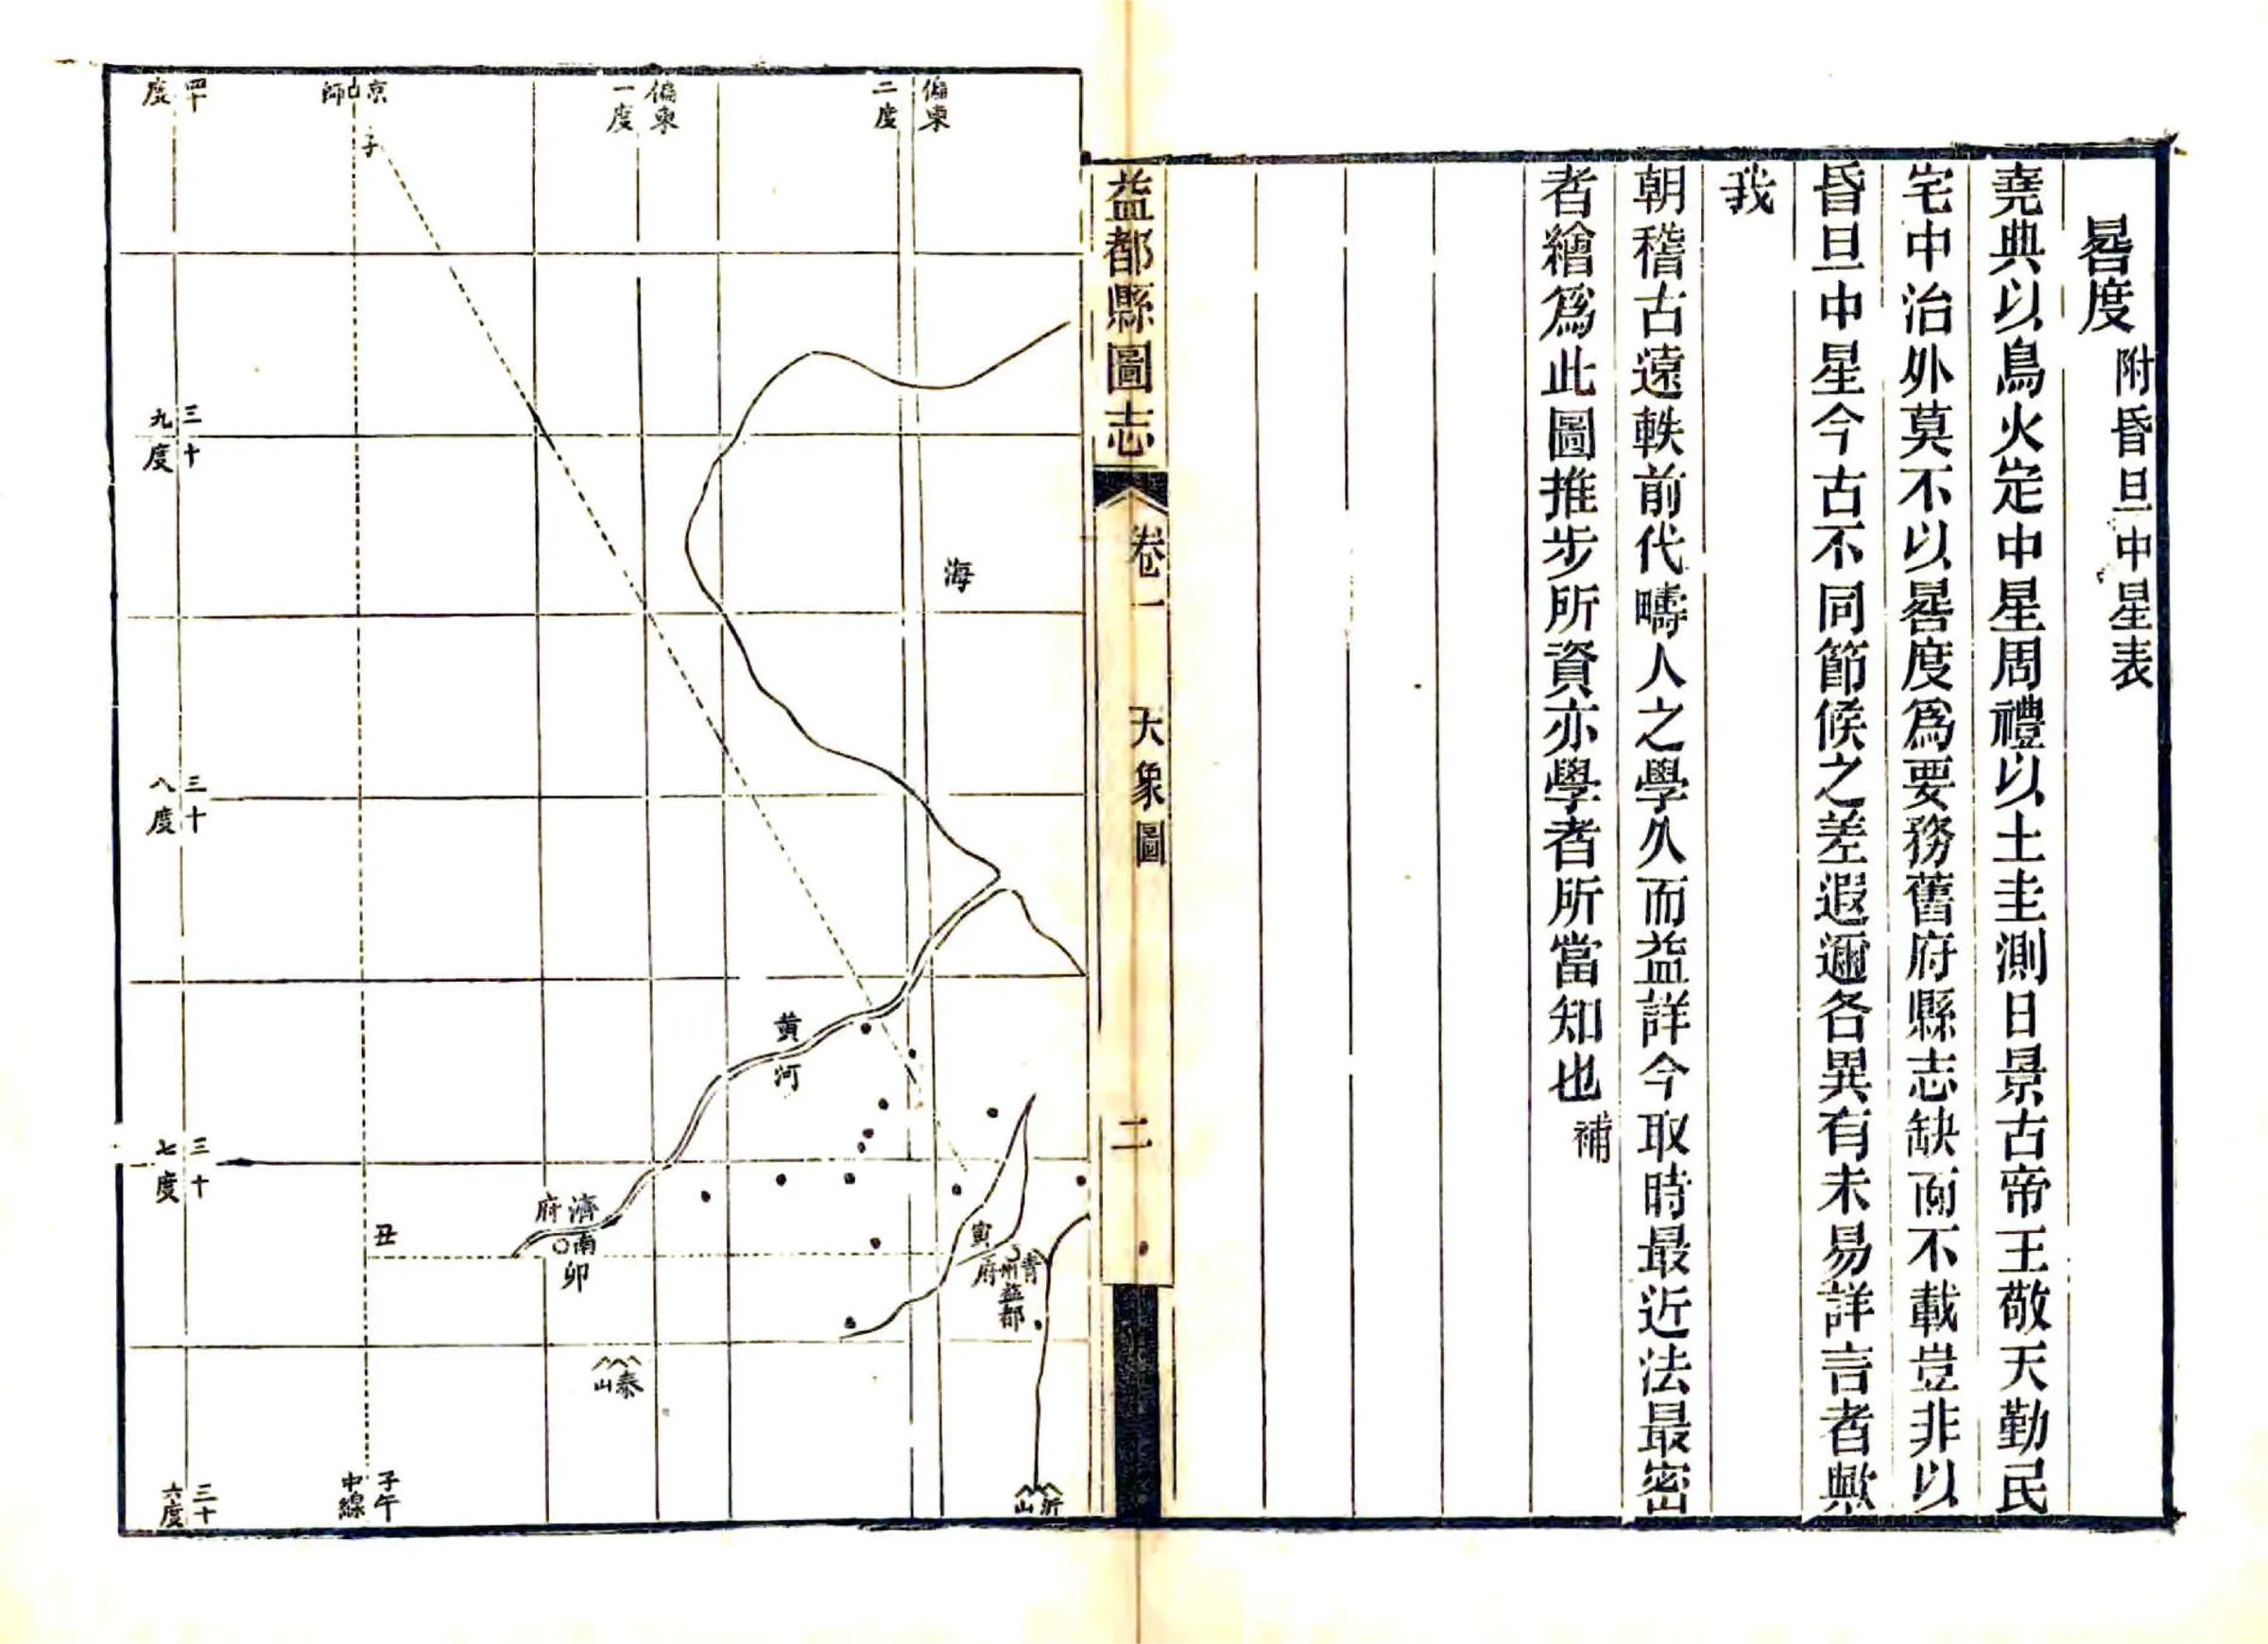 晷度附昏旦中星表
堯典以鳥火定中星周禮以土圭測日景古帝王敬天勤民
宅中治外莫不以晷度爲要務舊府縣志缺而不載豈非以
昏旦中星今古不同節候之差遐邇各異有未易詳言者歟
我
朝稽古遠軼前代疇人之學久而益詳今取時最近法最密
者繪爲此圖推步所資亦學者所當知也補
益都縣圖志
卷一
大象圖
二
偏東二度
偏東一度
京師
四十度
子
三十九度
海
三十八度
黃河
三十七度
濟南府
丑
卯
寅
青州府
益都
泰山
沂山
子午中線
三十六度